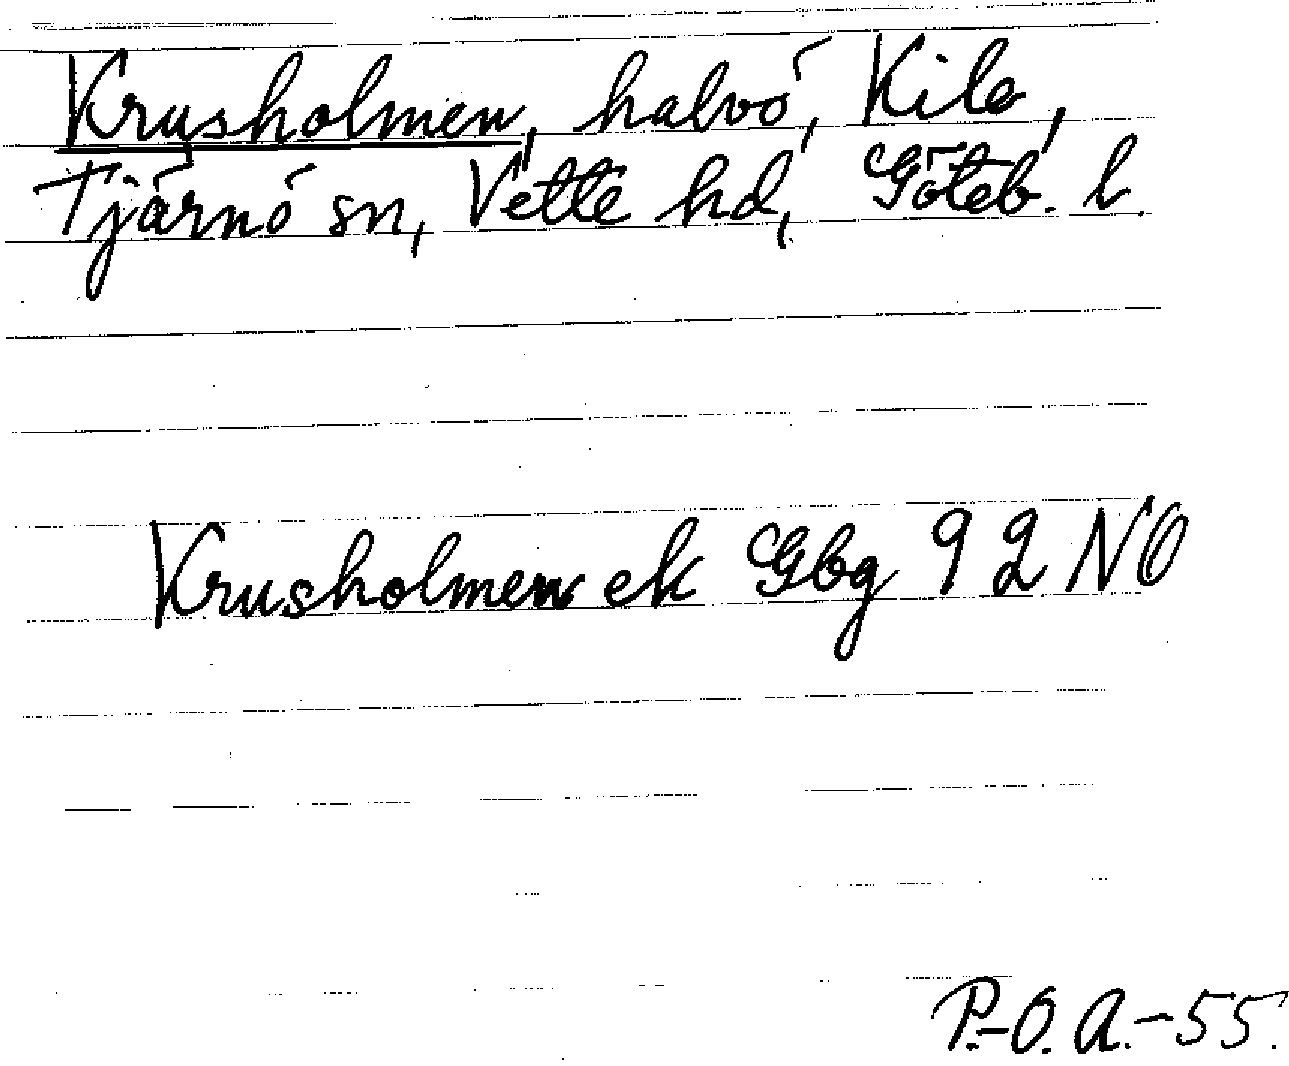 Krusholmen, halvö, Kile,
Tjärnö sn, Vette hd, Göteb. l.
Krusholmen ek Gbg 9 2 NO
P.-O. A.-55.